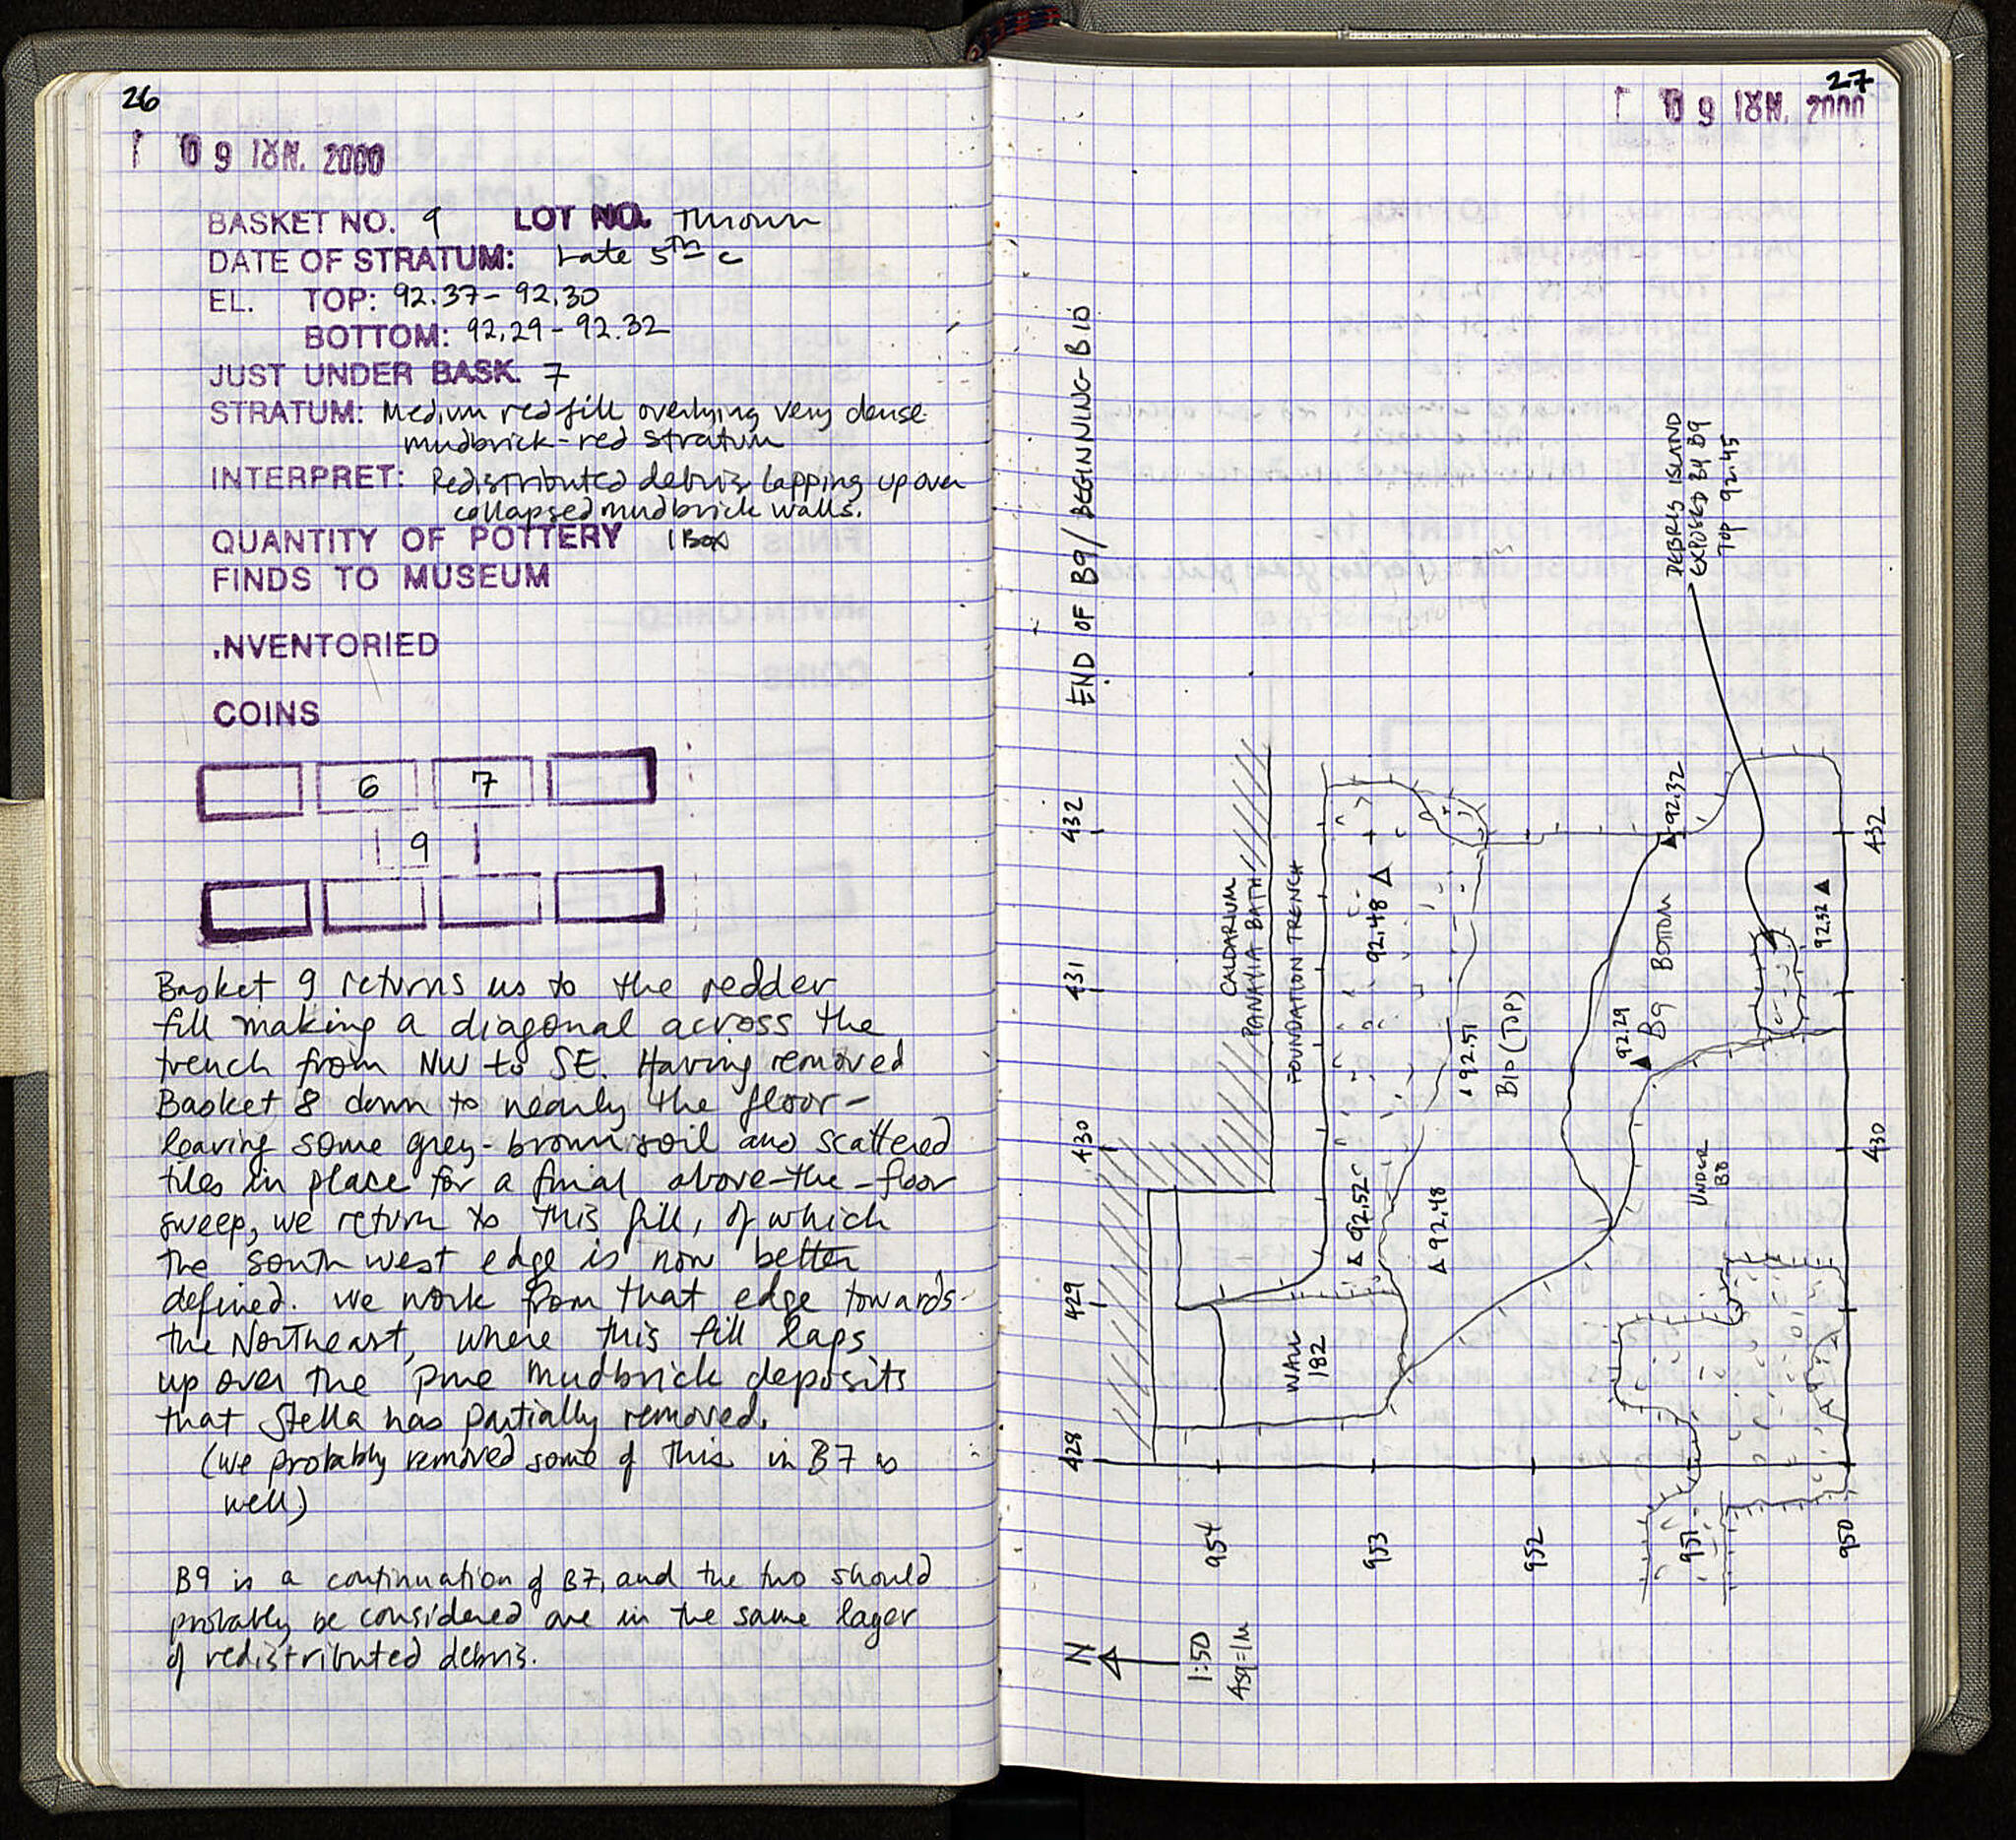 26
09 ΙΟΥΝ. 2000
BASKET NO. 9 LOT NO. Thrown
DATE OF STRATUM: Late 5th c
EL. TOP: 92.37 - 92.30
BOTTOM: 92.29 - 92.32
JUST UNDER BASK. 7
STRATUM: Medium red fill overlying very dense
mudbrick-red stratum
INTERPRET: Redistributed debris lapping up over
collapsed mudbrick walls.
QUANTITY OF POTTERY 1 Box
FINDS TO MUSEUM
.NVENTORIED
COINS
6 7
9
Basket 9 returns us to the redder
fill making a diagonal across the
trench from NW to SE. Having removed
Basket 8 down to nearly the floor -
leaving some grey-brown soil and scattered
tiles in place for a final above-the-floor
sweep, we return to this fill, of which
the south west edge is now better
defined. We work from that edge towards
the Northeast, where this fill laps
up over the pure mudbrick deposits
that Stella has partially removed.
(we probably removed some of this in B7 as
well)
B9 is a continuation of B7, and the two should
probably be considered one in the same layer
of redistributed debris.
27
09 ΙΟΥΝ. 2000
END OF B9/ BEGINNING B.10
DEBRIS ISLAND
EXPOSED BY B9
TOP 92.45
432
431
430
429
428
CALDARIUM
PANAYIA BATH
FOUNDATION TRENCH
92.48
92.32
92.51
B10 (TOP)
92.29
B9 BOTTOM
92.32
432
430
UNDER
B8
92.52
92.48
WALL
182
954
953
952
951
950
N
1:50
4sq=1m